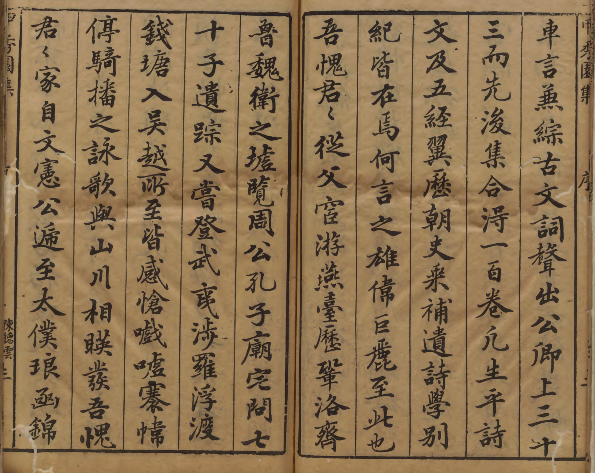 車言兼綜古文詞聲出公卿上三十
三而先後集合得一百卷凡生平詩
文及五經翼歷朝史来補遺詩學別
紀皆在焉何言之雄偉巨麗至此也
吾愧君〻從父宦游燕臺歷鞏洛齊
魯魏衛之墟覽周公孔子廟宅問七
十子遺踪又嘗登武夷涉羅浮渡
錢塘入吳越所至皆感愴嘘寨幃
停騎播之詠歌與山川相映發吾愧
君〻家自文憲公遞至太僕琅函錦